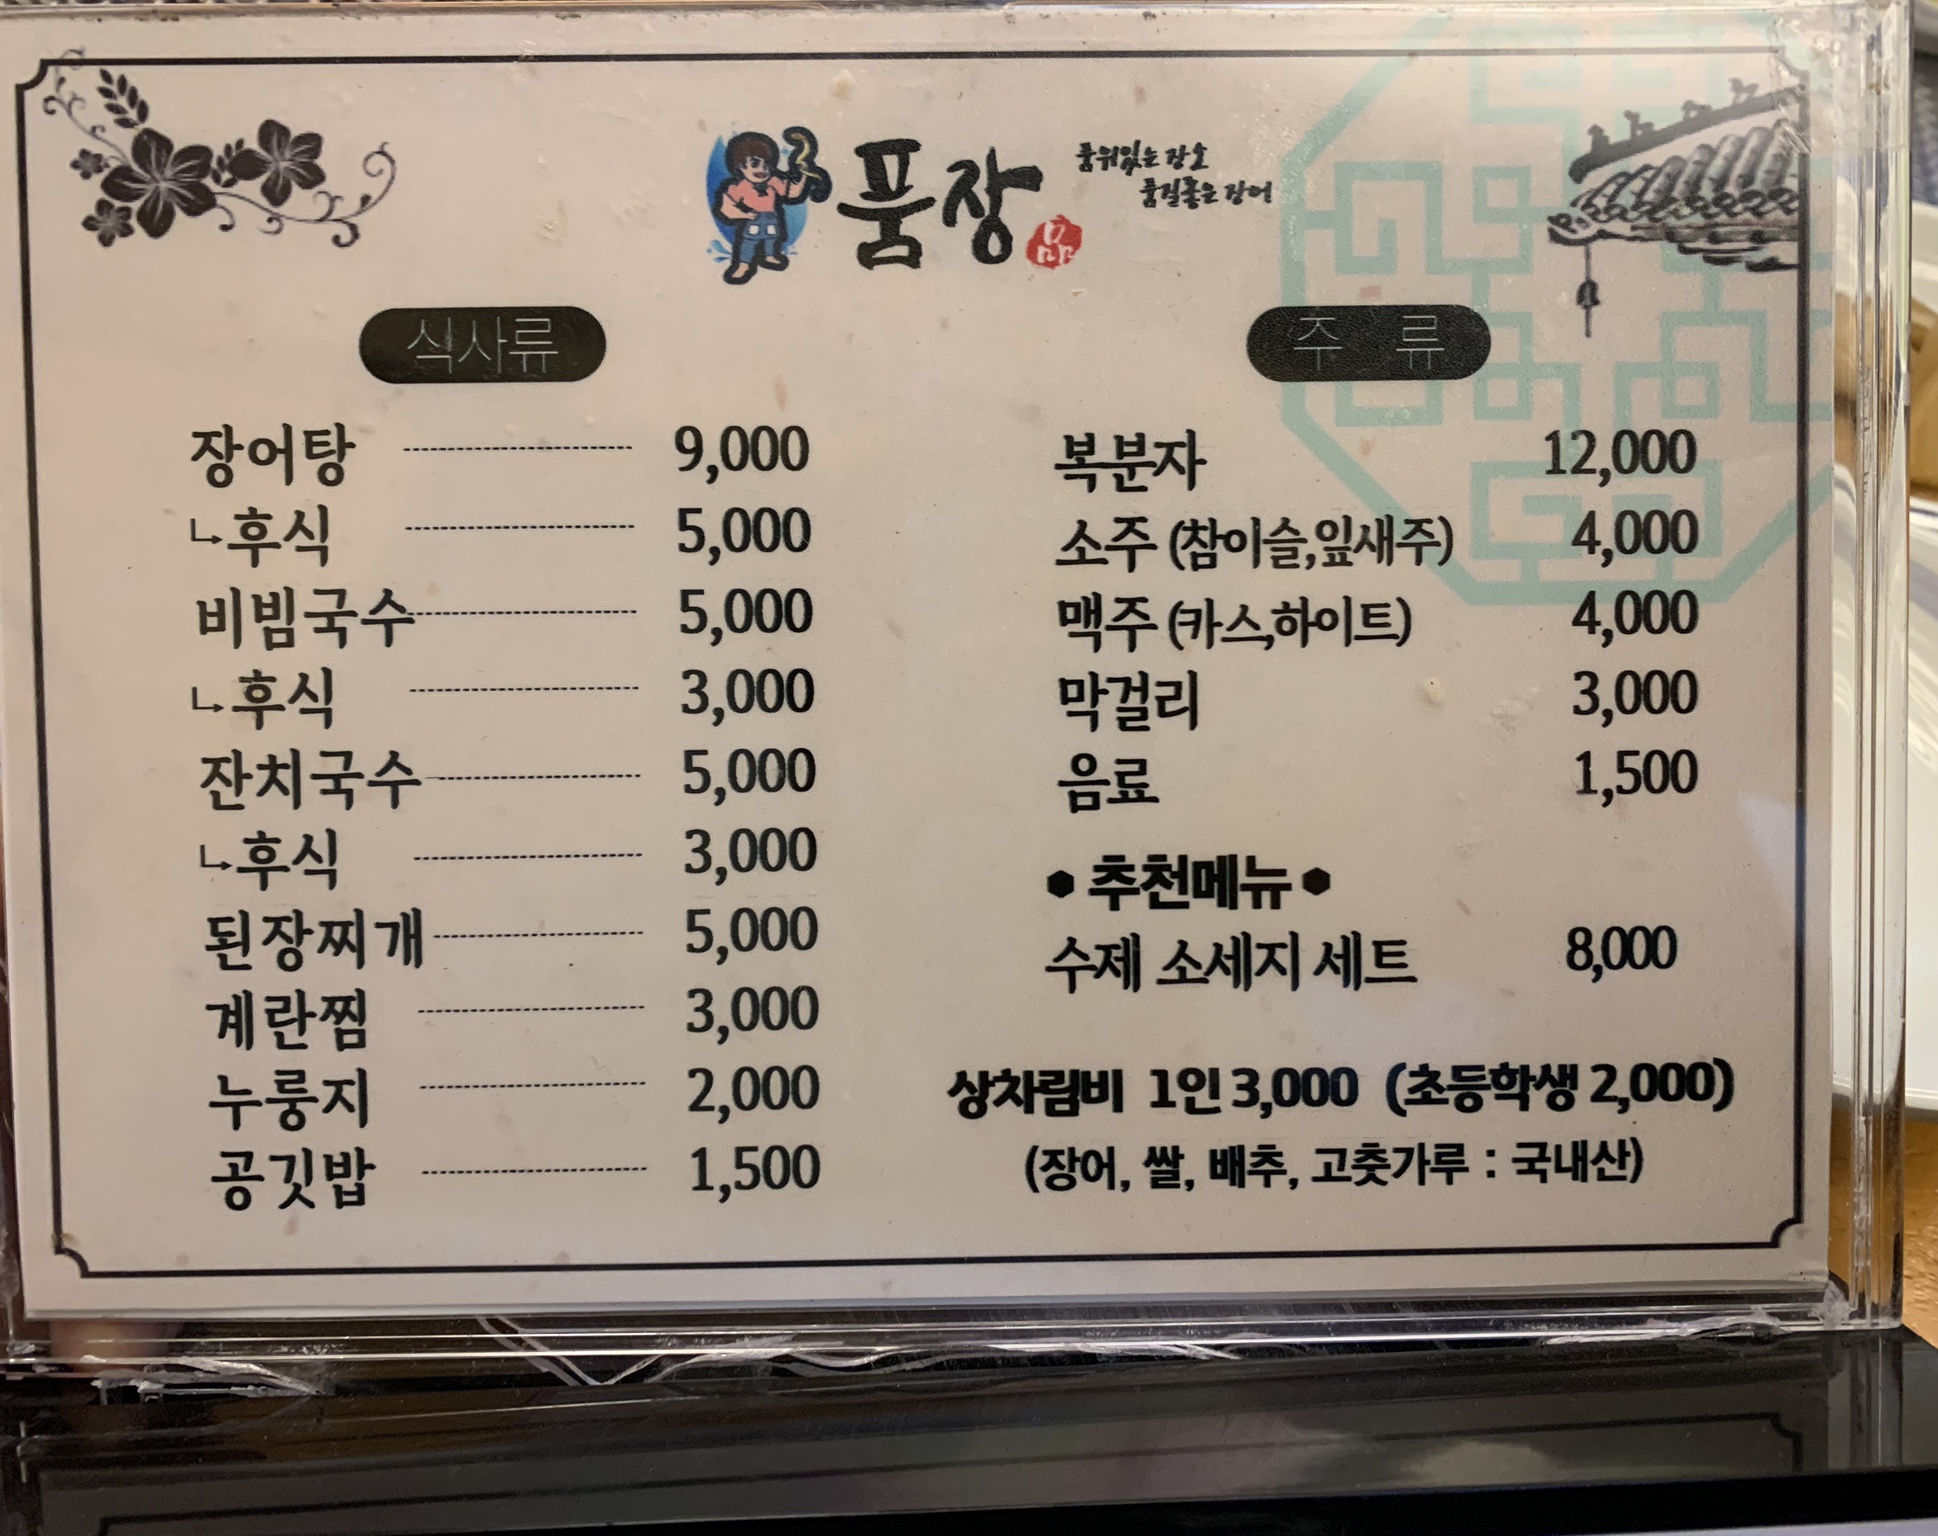 품장
품위있는 장소
품질좋은 장어
品
식사류
장어탕 9,000
↳후식 5,000
비빔국수 5,000
↳후식 3,000
잔치국수 5,000
↳후식 3,000
된장찌개 5,000
계란찜 3,000
누룽지 2,000
공깃밥 1,500
주 류
복분자 12,000
소주 (참이슬,잎새주) 4,000
맥주 (카스,하이트) 4,000
막걸리 3,000
음료 1,500
● 추천메뉴 ●
수제 소세지 세트 8,000
상차림비 1인 3,000 (초등학생 2,000)
(장어, 쌀, 배추, 고춧가루 : 국내산)